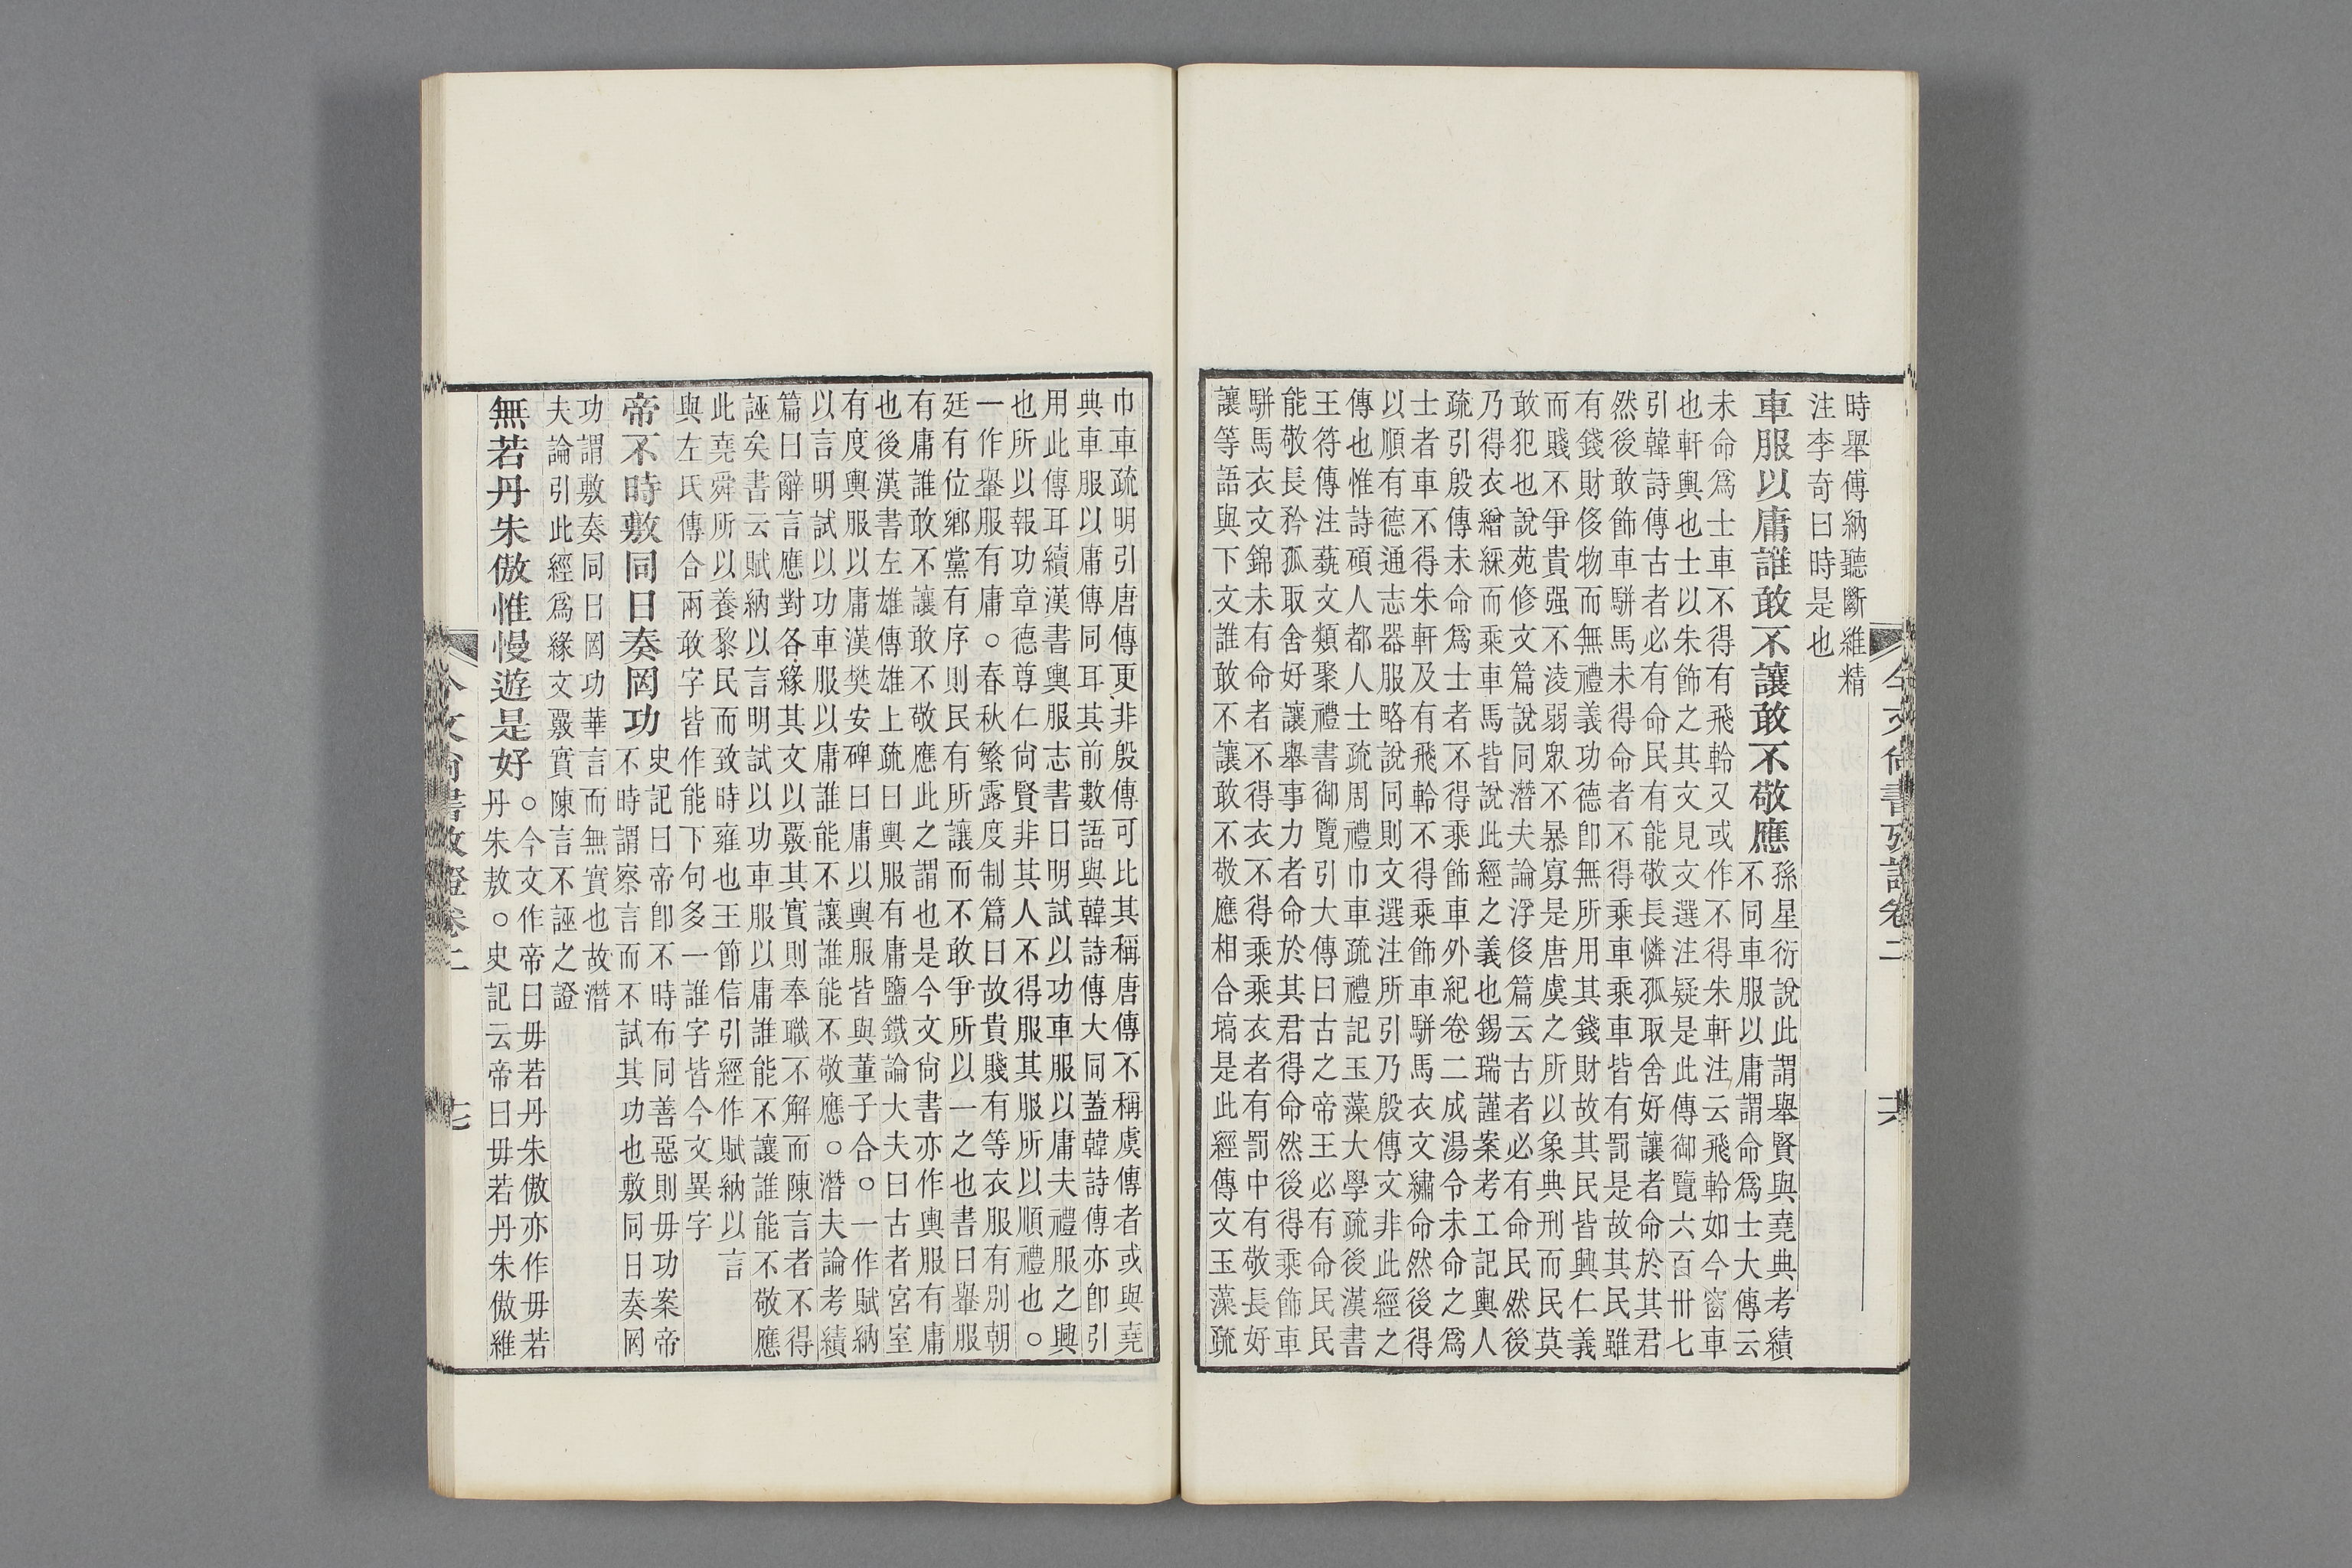 今文尙書攷證卷二
十六
時舉傅納聽斷維精
注李奇曰時是也
車服以庸誰敢不讓敢不敬應
孫星衍說此謂舉賢與堯典考績
不同車服以庸謂命爲士大傳云
未命爲士車不得有飛軨又或作不得朱軒注云飛軨如今窗車
也軒輿也士以朱飾之其文見文選注疑是此傳御覽六百卅七
引韓詩傳古者必有命民有能敬長憐孤取舍好讓者命於其君
然後敢飾車駢馬未得命者不得乘車乘車皆有罰是故其民雖
有錢財侈物而無禮義功德卽無所用其錢財故其民皆興仁義
而賤不爭貴强不淩弱眾不暴寡是唐虞之所以象典刑而民莫
敢犯也說苑修文篇說同潛夫論浮侈篇云古者必有命民然後
乃得衣繒綵而乘車馬皆說此經之義也錫瑞謹案考工記輿人
疏引殷傳未命爲士者不得乘飾車外紀卷二成湯令未命之爲
士者車不得朱軒及有飛軨不得乘飾車駢馬衣文繡命然後得
以順有德通志器服略說同則文選注所引乃殷傳文非此經之
傳也惟詩碩人都人士疏周禮巾車疏禮記玉藻大學疏後漢書
王符傳注蓺文類聚禮書御覽引大傳曰古之帝王必有命民民
能敬長矜孤取舍好讓舉事力者命於其君得命然後得乘飾車
駢馬衣文錦未有命者不得衣不得乘乘衣者有罰中有敬長好
讓等語與下文誰敢不讓敢不敬應相合塙是此經傳文玉藻疏
巾車疏明引唐傳更非殷傳可比其稱唐傳不稱虞傳者或與堯
典車服以庸傳同耳其前數語與韓詩傳大同蓋韓詩傳亦卽引
用此傳耳續漢書輿服志書曰明試以功車服以庸夫禮服之興
也所以報功章德尊仁尙賢非其人不得服其服所以順禮也○
一作轝服有庸○春秋繁露度制篇曰故貴賤有等衣服有別朝
廷有位鄉黨有序則民有所讓而不敢爭所以一之也書曰轝服
有庸誰敢不讓敢不敬應此之謂也是今文尙書亦作輿服有庸
也後漢書左雄傳雄上疏曰輿服有庸鹽鐵論大夫曰古者宮室
有度輿服以庸漢樊安碑曰庸以輿服皆與董子合○一作賦納
以言明試以功車服以庸誰能不讓誰能不敬應○潛夫論考績
篇曰辭言應對各緣其文以覈其實則奉職不解而陳言者不得
誣矣書云賦納以言明試以功車服以庸誰能不讓誰能不敬應
此堯舜所以養黎民而致時雍也王節信引經作賦納以言
與左氏傳合兩敢字皆作能下句多一誰字皆今文異字
帝不時敷同日奏罔功
史記曰帝卽不時布同善惡則毋功案帝
不時謂察言而不試其功也敷同日奏罔
功謂敷奏同日罔功華言而無實也故潛
夫論引此經爲緣文覈實陳言不誣之證
無若丹朱傲惟慢遊是好
○今文作帝曰毋若丹朱傲亦作毋若
丹朱敖○史記云帝曰毋若丹朱傲維
今文尙書攷證卷二
十七